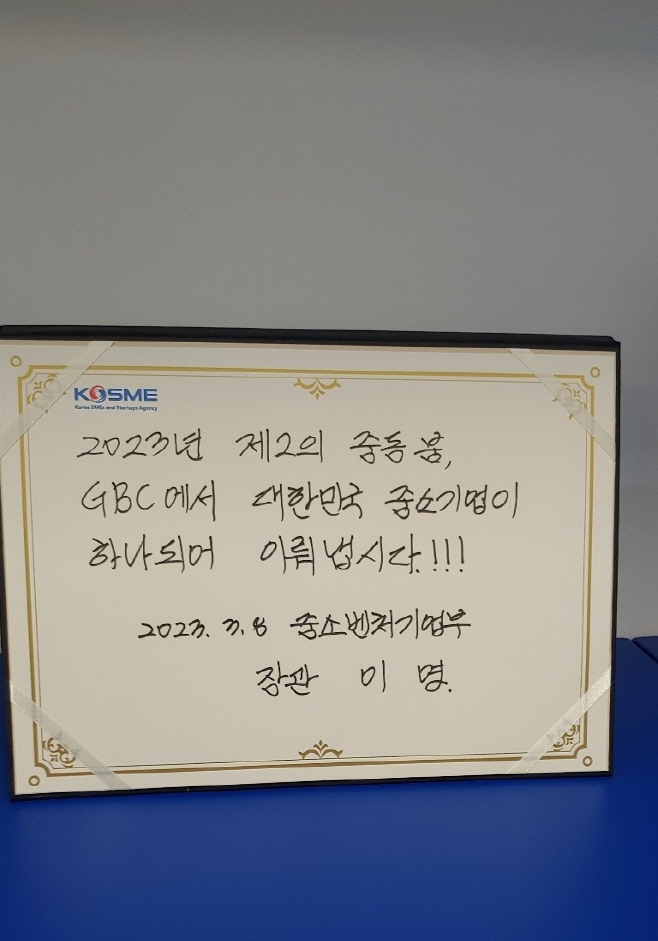 KOSME
Korea SMEs and Startups Agency
2023년 제2의 중동붐,
GBC에서 대한민국 중소기업이
하나되어 이뤄냅시다.!!!
2023. 3. 8 중소벤처기업부
장관 이 영.